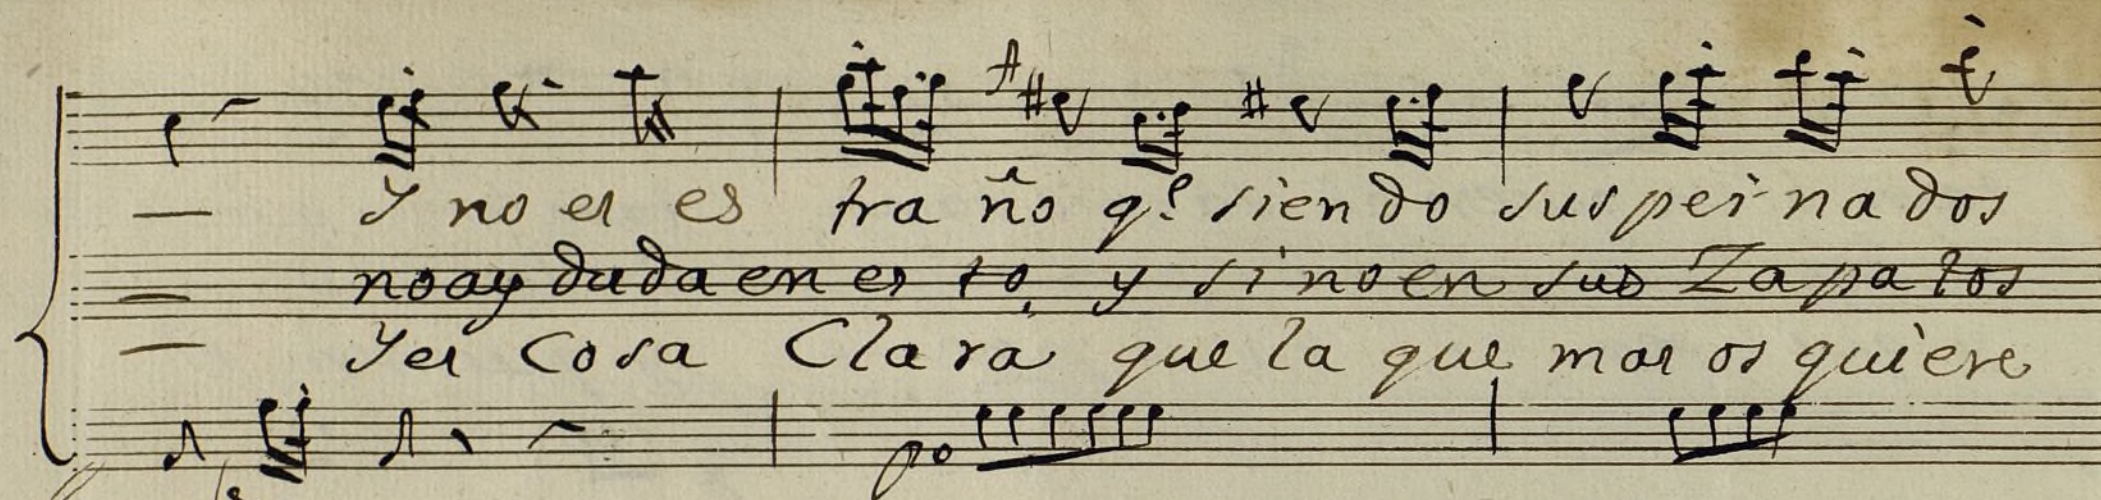 Y no es es tra ño qe siendo sus pei na dos
no ay duda en es to, y si no en sus Za pa tos
Y es Cosa Cla ra que la que mas os quiere
po